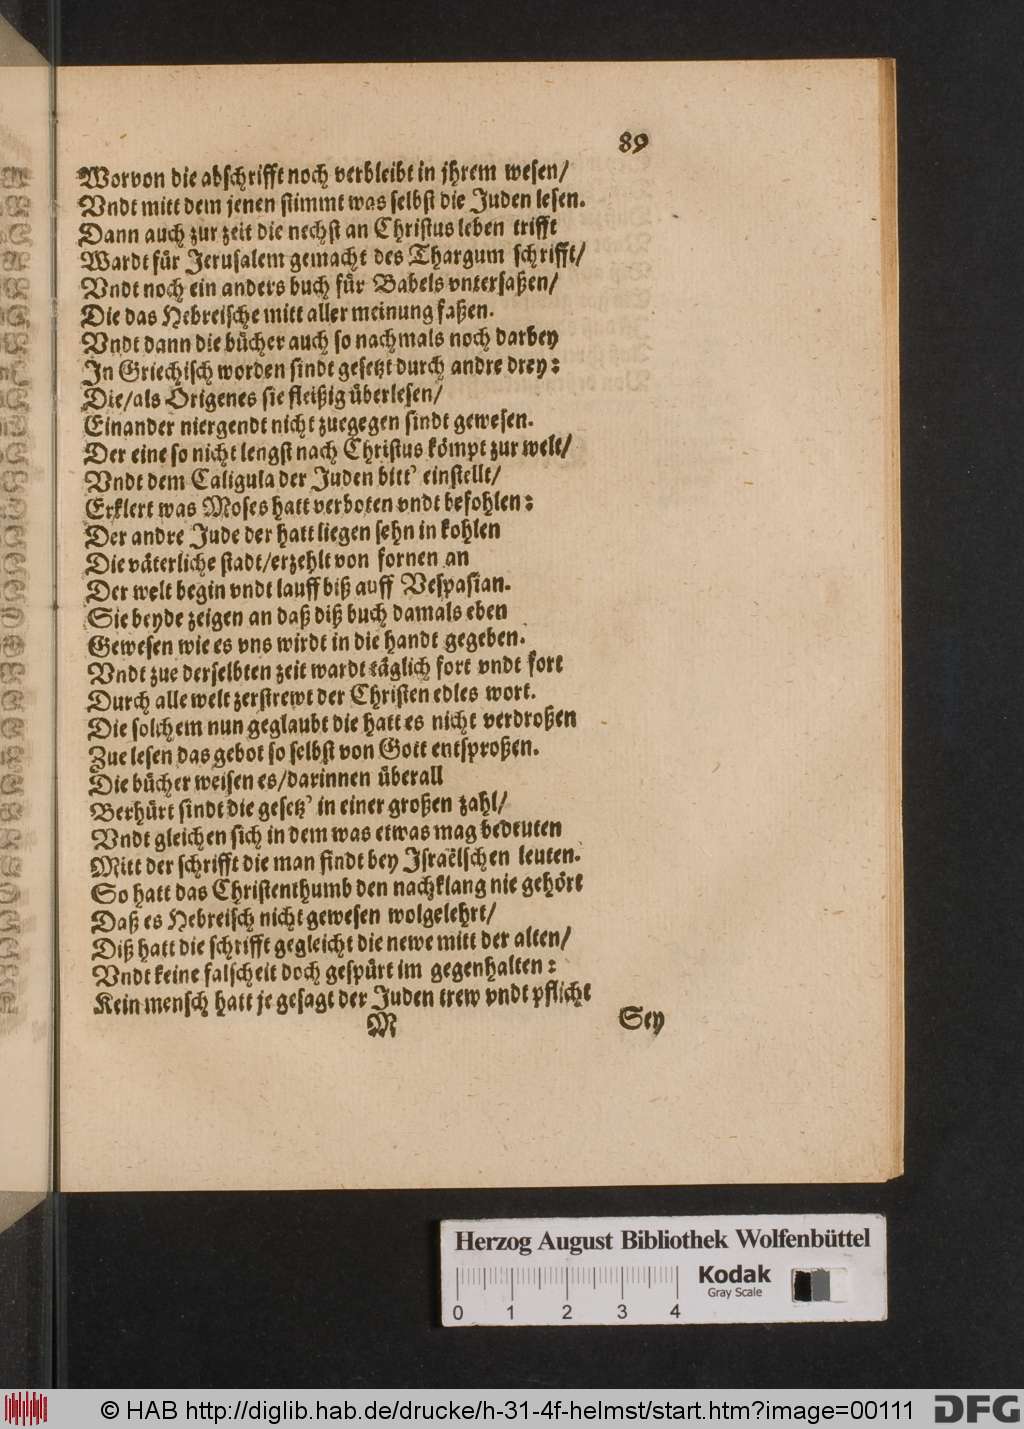 89
Worvon die abschrifft noch verbleibt in jhrem wesen/
Vndt mitt dem jenen stimmt was selbst die Juden lesen.
Dann auch zur zeit die nechst an Christus leben trifft
Wardt für Jerusalem gemacht des Thargum schrifft/
Vndt noch ein anders buch für Babels vntersaßen/
Die das Hebreische mitt aller meinung faßen.
Vndt dann die bücher auch so nachmals noch darbey
In Griechisch worden sindt gesetzt durch andre drey:
Die/als Origenes sie fleißig überlesen/
Einander niergendt nicht zuegegen sindt gewesen.
Der eine so nicht lengst nach Christus kömpt zur welt/
Vndt dem Caligula der Juden bitt' einstellt/
Erklert was Moses hatt verboten vndt befohlen:
Der andre Jude der hatt liegen sehn in kohlen
Die väterliche stadt/erzehlt von fornen an
Der welt begin vndt lauff biß auff Vespasian.
Sie beyde zeigen an daß diß buch damals eben
Gewesen wie es vns wirdt in die handt gegeben.
Vndt zue derselbten zeit wardt täglich fort vndt fort
Durch alle welt zerstrewt der Christen edles wort.
Die solchem nun geglaubt die hatt es nicht verdroßen
Zue lesen das gebot so selbst von Gott entsproßen.
Die bücher weisen es/darinnen überall
Berhürt sindt die gesetz' in einer großen zahl/
Vndt gleichen sich in dem was etwas mag bedeuten
Mitt der schrifft die man findt bey Israëlschen leuten.
So hatt das Christenthumb den nachklang nie gehört
Daß es Hebreisch nicht gewesen wolgelehrt/
Diß hatt die schrifft gegleicht die newe mitt der alten/
Vndt keine falscheit doch gespürt im gegenhalten:
Kein mensch hatt je gesagt der Juden trew vndt pflicht
M Sey
Herzog August Bibliothek Wolfenbüttel
Kodak
Gray Scale
0 1 2 3 4
© HAB http://diglib.hab.de/drucke/h-31-4f-helmst/start.htm?image=00111 DFG